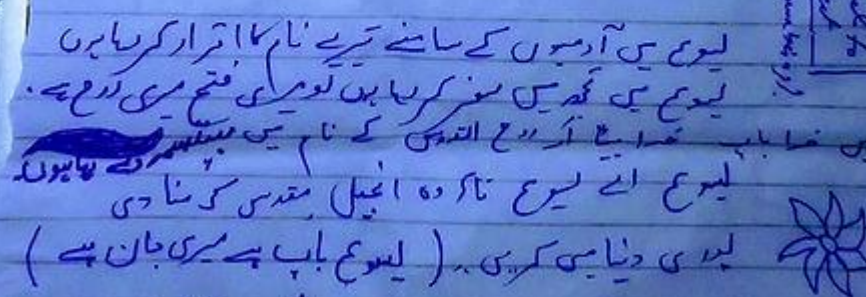 یسوع میں آدمیوں کے سامنے تیرے نام کا اقرار کر رہا ہوں
یسوع میں تجھ میں سفر کر رہا ہوں تو میری فتح میری روح ہے۔
میں خدا باپ خدا بیٹے اور روح القدس کے نام میں بپتسمہ لے رہا ہوں۔
یسوع اے یسوع تاکہ وہ انجیل مقدس کی منادی
پوری دنیا میں کریں۔ (یسوع باپ ہے میری جان ہے)